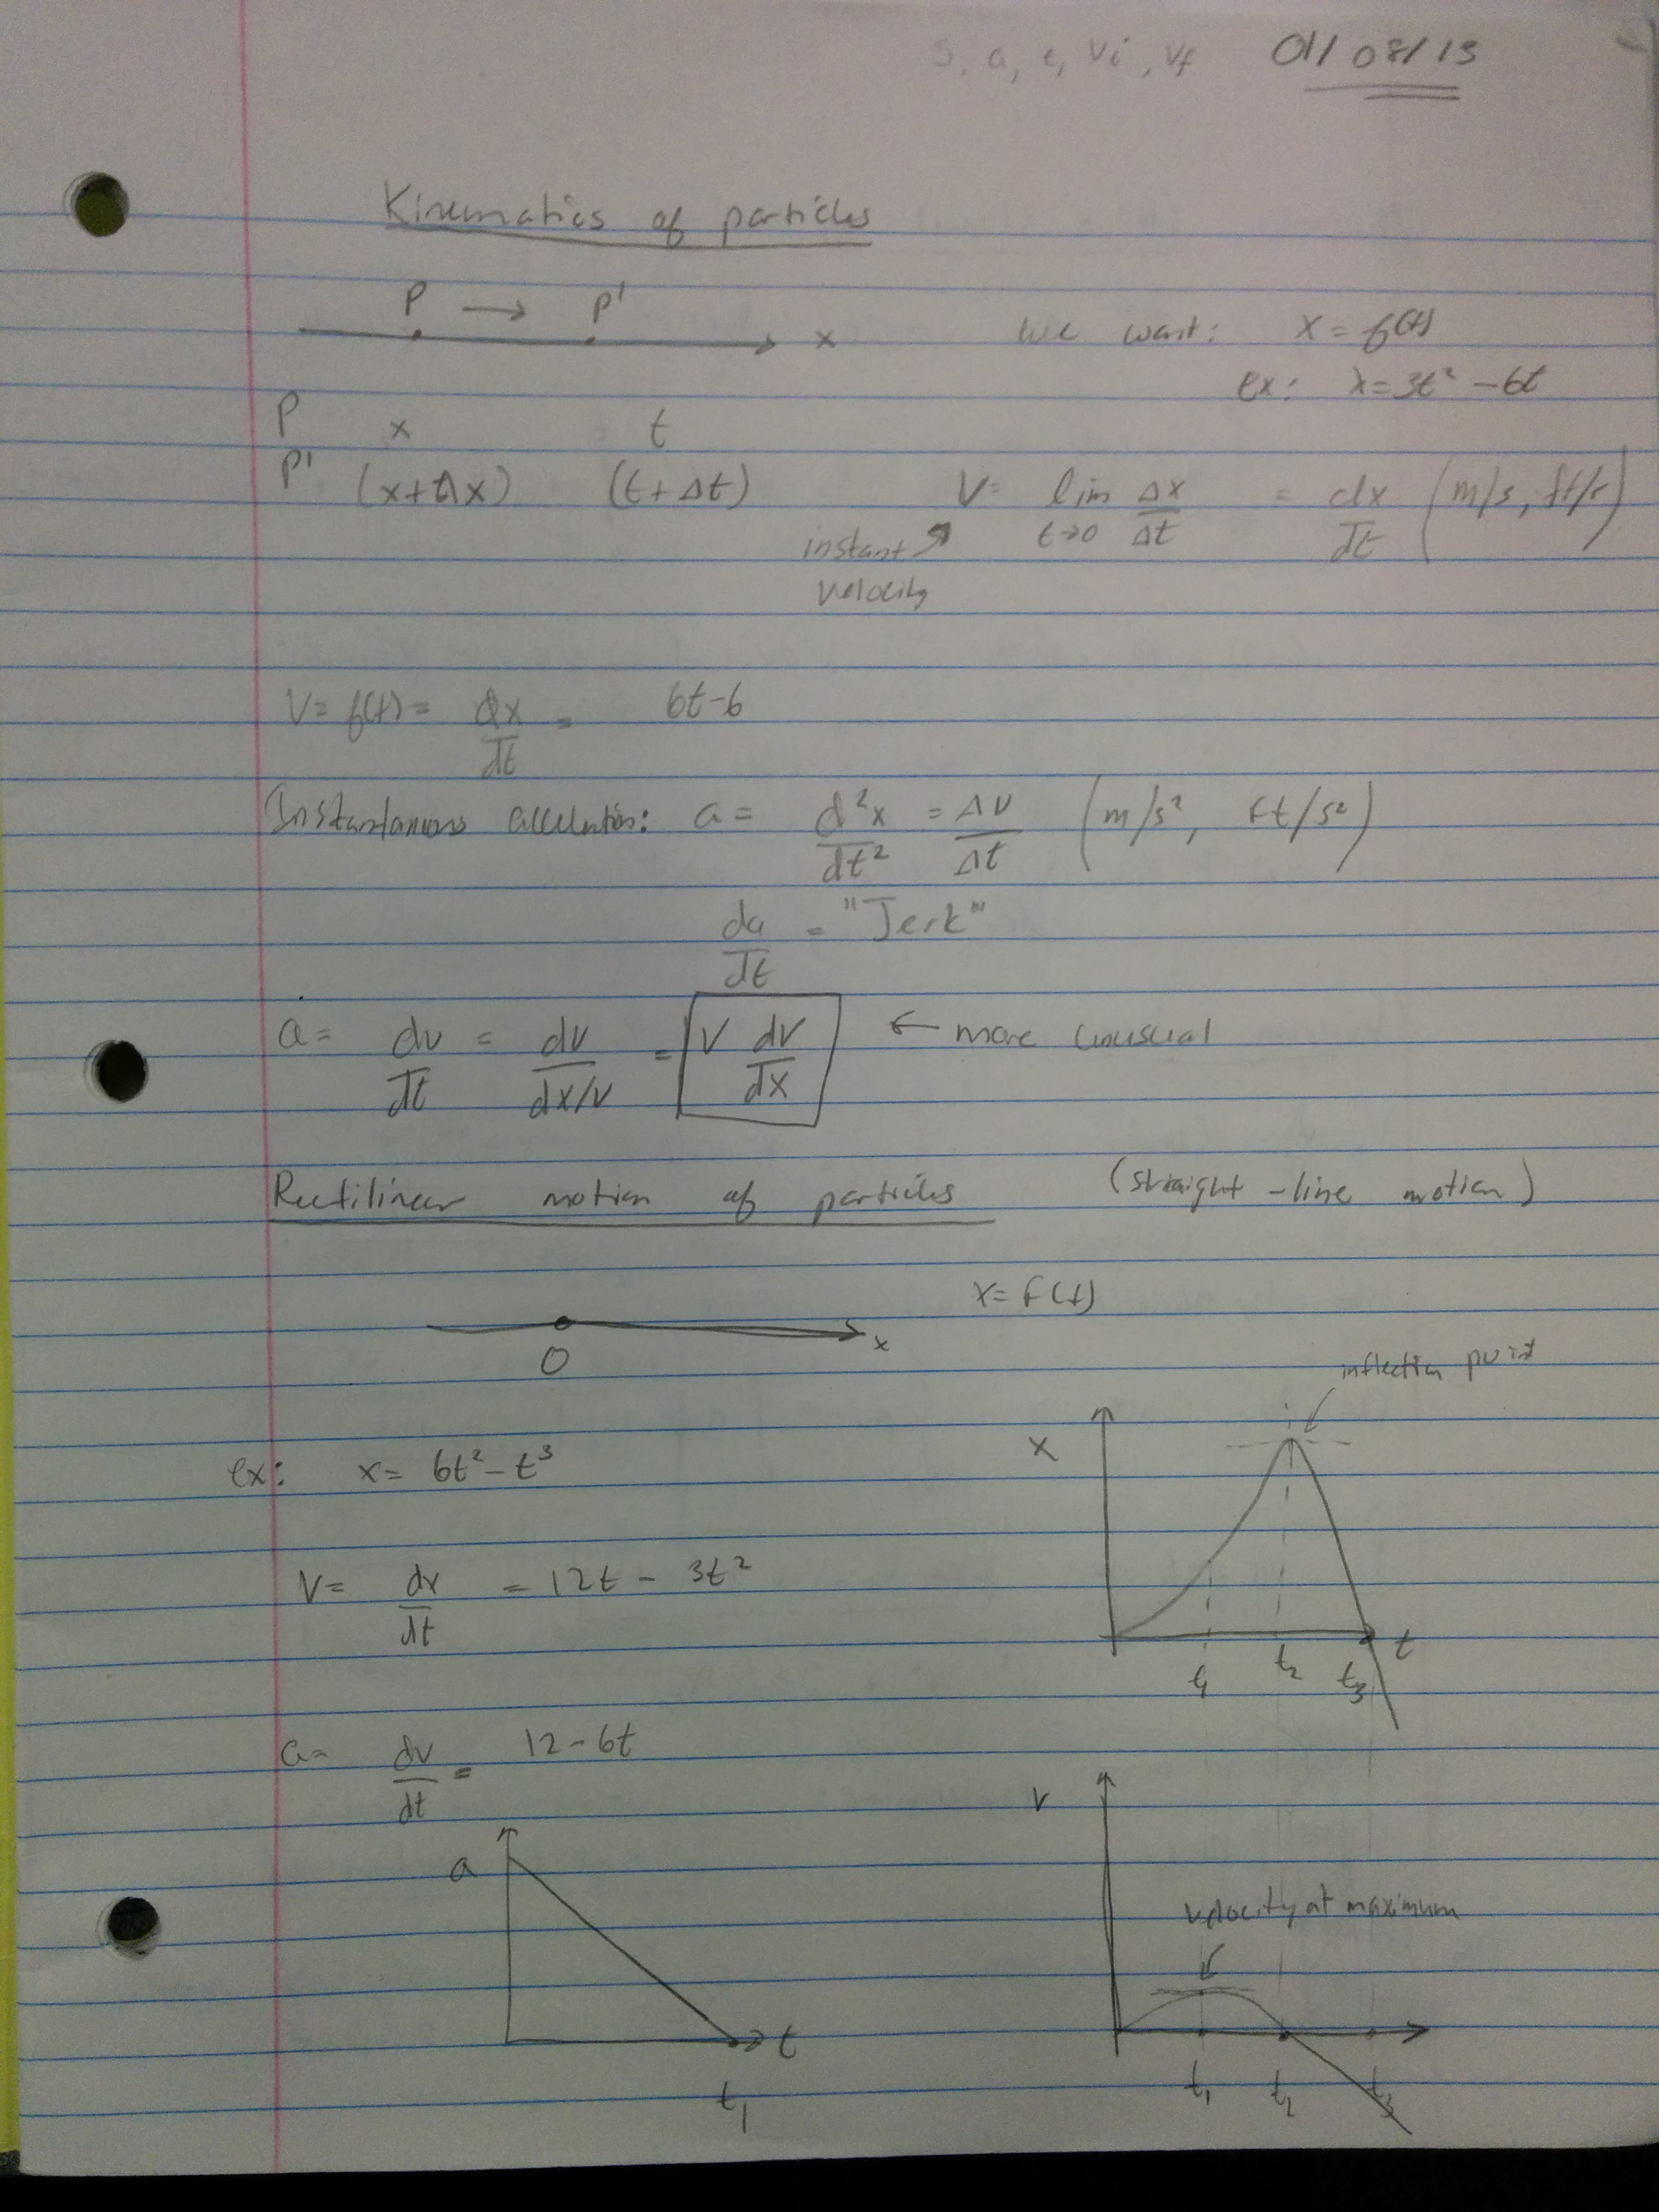 s, a, t, Vi, Vf 01/08/13
Kinematics of particles
P → P'
x
we want: x = f(t)
ex: x = 3t² - 6t
P x t
P' (x+Δx) (t+Δt)
V = lim t→0 Δx/Δt = dx/dt (m/s, ft/s)
instant velocity
V = f(t) = dx/dt = 6t-6
Instantaneous acceleration: a = d²x/dt² = Δv/Δt (m/s², ft/s²)
da/dt = "Jerk"
a = dv/dt = dv/dx/v = V dv/dx ← more unusual
Rectilinear motion of particles (straight-line motion)
x = f(t)
O x
inflection point
x
ex: x = 6t² - t³
V = dx/dt = 12t - 3t²
t
t₁ t₂ t₃
a = dv/dt = 12-6t
v
a
velocity at maximum
t
t₁
t₁ t₂ t₃